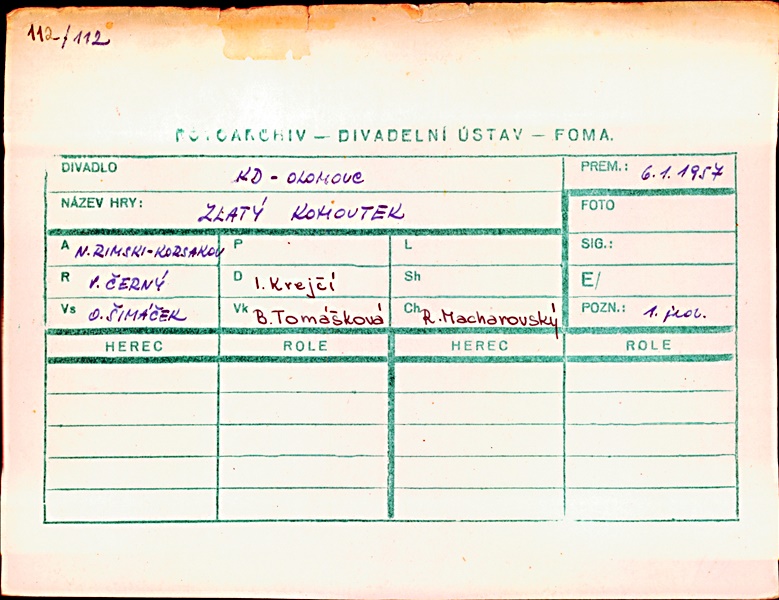 112/112
FOTOARCHIV – DIVADELNÍ ÚSTAV – FOMA.
DIVADLO KD - OLOMOUC PREM.: 6.1.1957
NÁZEV HRY: ZLATÝ KOHOUTEK FOTO
A N. RIMSKI-KORSAKOV P L SIG.:
R P. ČERNÝ D I. Krejčí Sh E/
Vs O. ŠIMÁČEK Vk B. Tomášková Ch R. Macharovský POZN.: 1. jedn.
HEREC ROLE HEREC ROLE